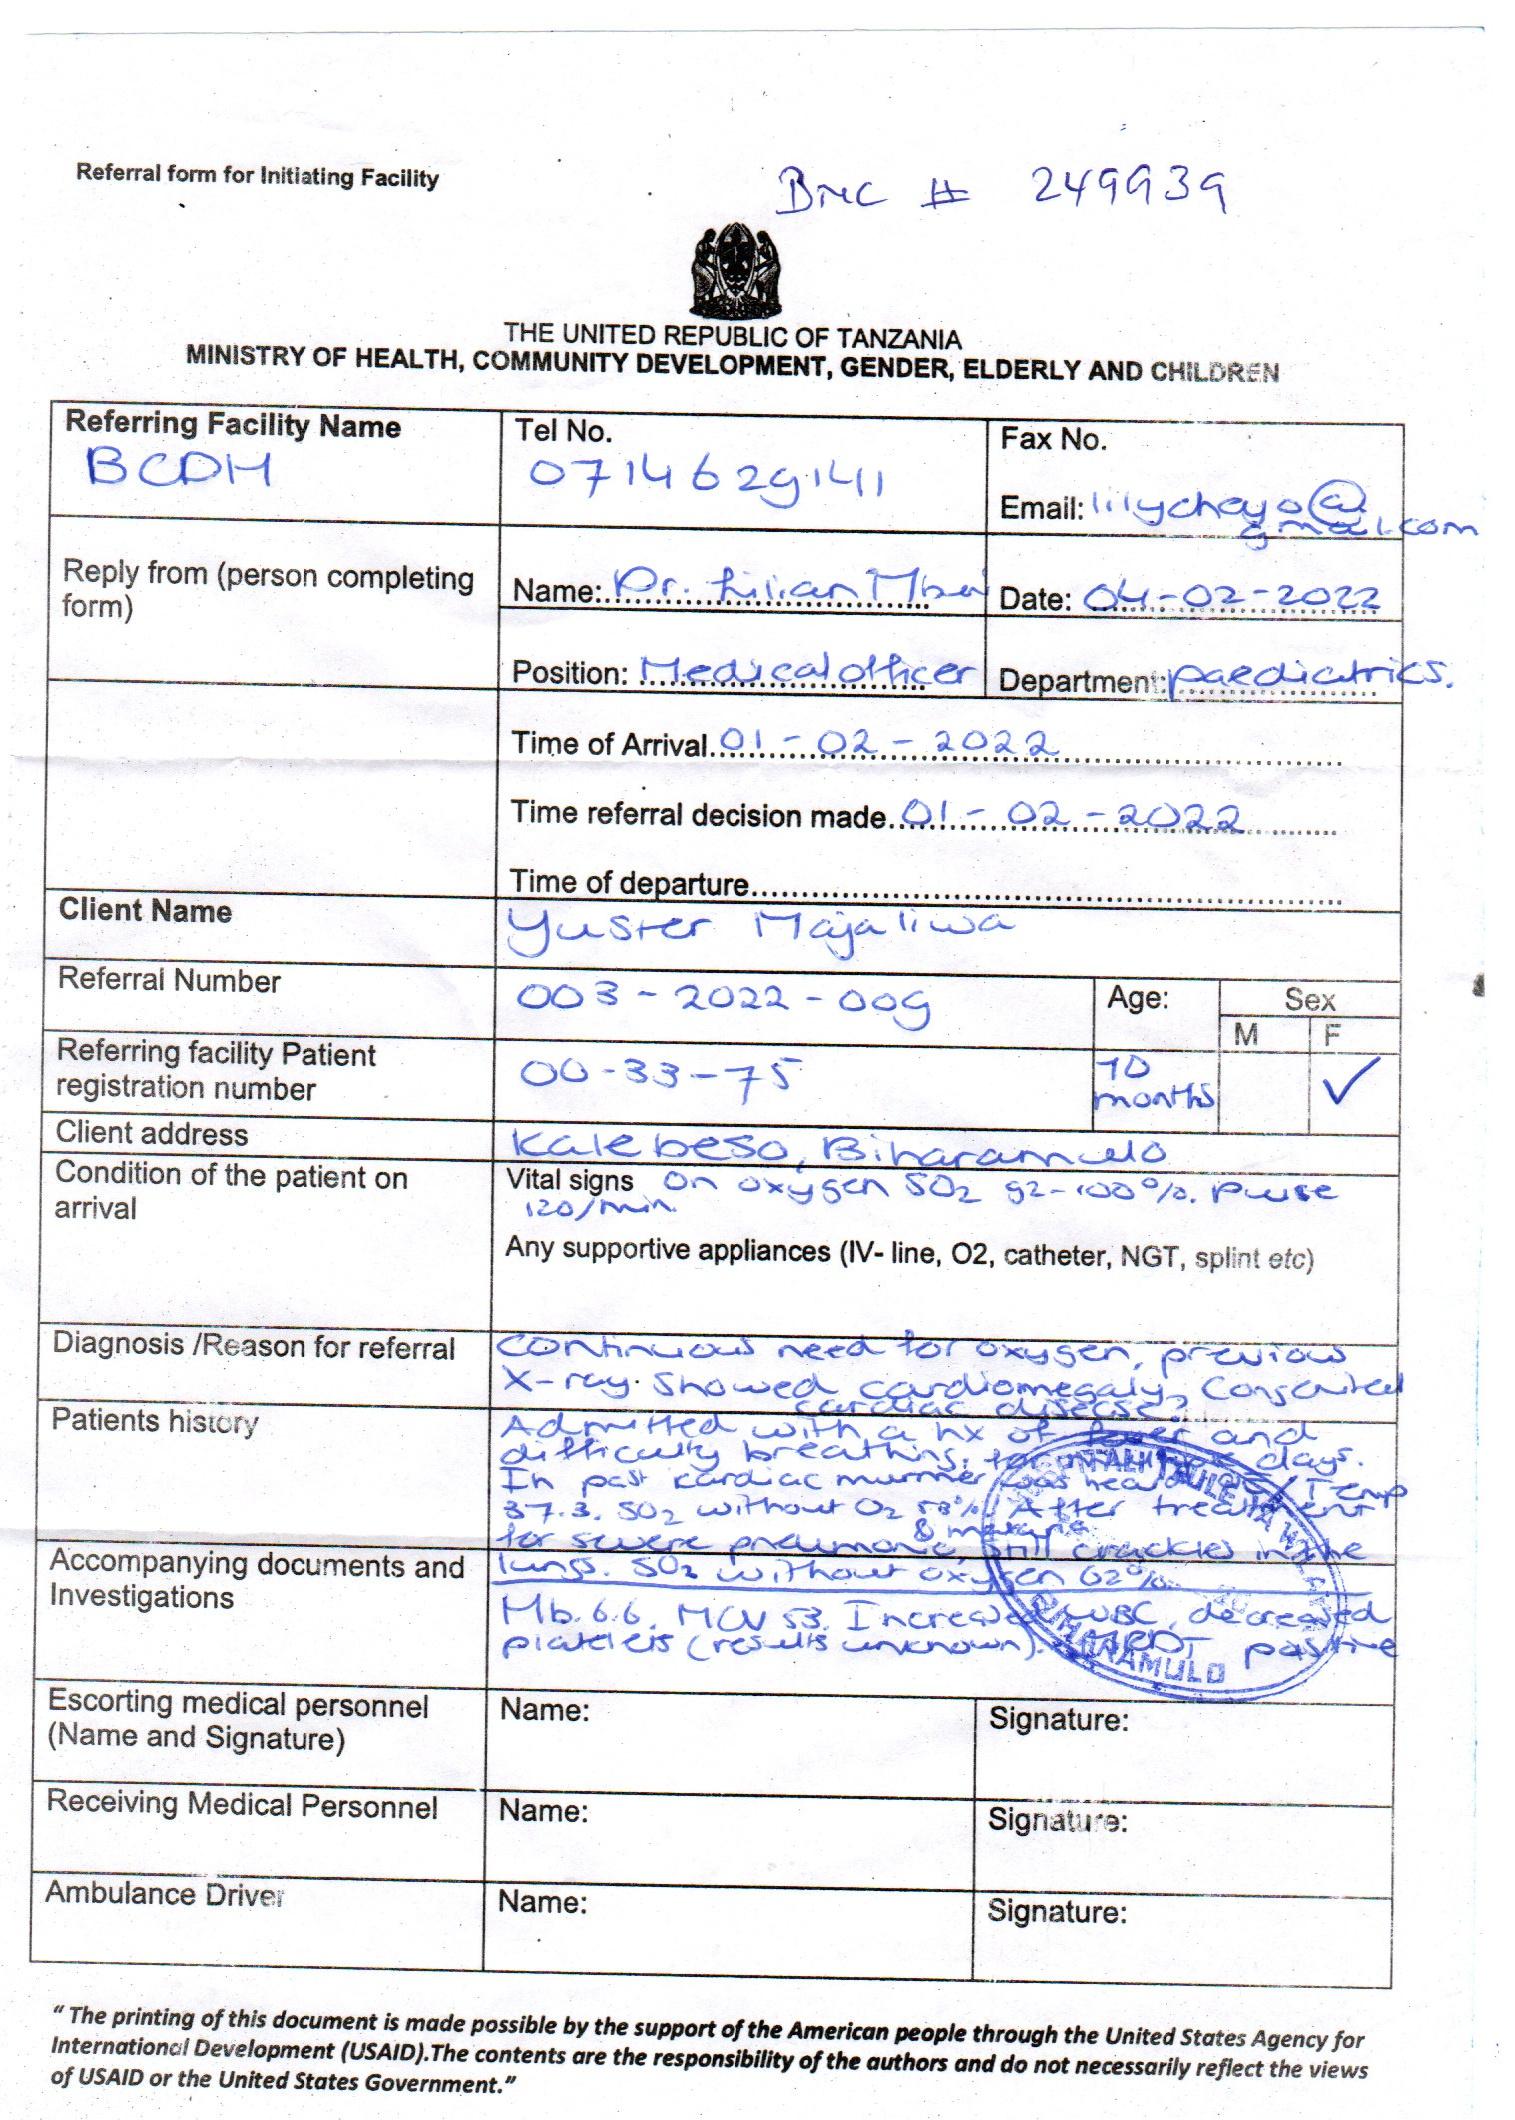 Referral form for Initiating Facility
BMC # 249939
THE UNITED REPUBLIC OF TANZANIA
MINISTRY OF HEALTH, COMMUNITY DEVELOPMENT, GENDER, ELDERLY AND CHILDREN
Referring Facility Name
BCDH
Tel No.
0714629141
Fax No.
Email: lilychayo@
gmail.com
Reply from (person completing
form)
Name: Dr. Lilian
Date: 04-02-2022
Position: Medical officer
Department: paediatrics.
Time of Arrival 01-02-2022
Time referral decision made 01-02-2022
Time of departure
Client Name
Yuster Majaliwa
Referral Number
003-2022-009
Age:
Sex
M F
Referring facility Patient
registration number
00-33-75
10
months
✓
Client address
Kalebeso, Biharamulo
Condition of the patient on
arrival
Vital signs On oxygen SO2 92-100%. Pulse
120/min
Any supportive appliances (IV- line, O2, catheter, NGT, splint etc)
Diagnosis /Reason for referral
Continuous need for oxygen, previous
X-ray showed cardiomegaly,
cardiac disease?
Patients history
Admitted with a hx of fever and
difficulty breathing, for days.
In past cardiac murmer was heard. Temp
37.3. SO2 without O2 After treatment
for severe pneumonia & malaria, still crackles in the
lungs. SO2 without oxygen 62%
Accompanying documents and
Investigations
Hb. 6.6. MCV 53. Increased WBC, decreased
platelets (results unknown). MRDT positive
BIHARAMULO
Escorting medical personnel
(Name and Signature)
Name:
Signature:
Receiving Medical Personnel
Name:
Signature:
Ambulance Driver
Name:
Signature:
“ The printing of this document is made possible by the support of the American people through the United States Agency for
International Development (USAID).The contents are the responsibility of the authors and do not necessarily reflect the views
of USAID or the United States Government.”